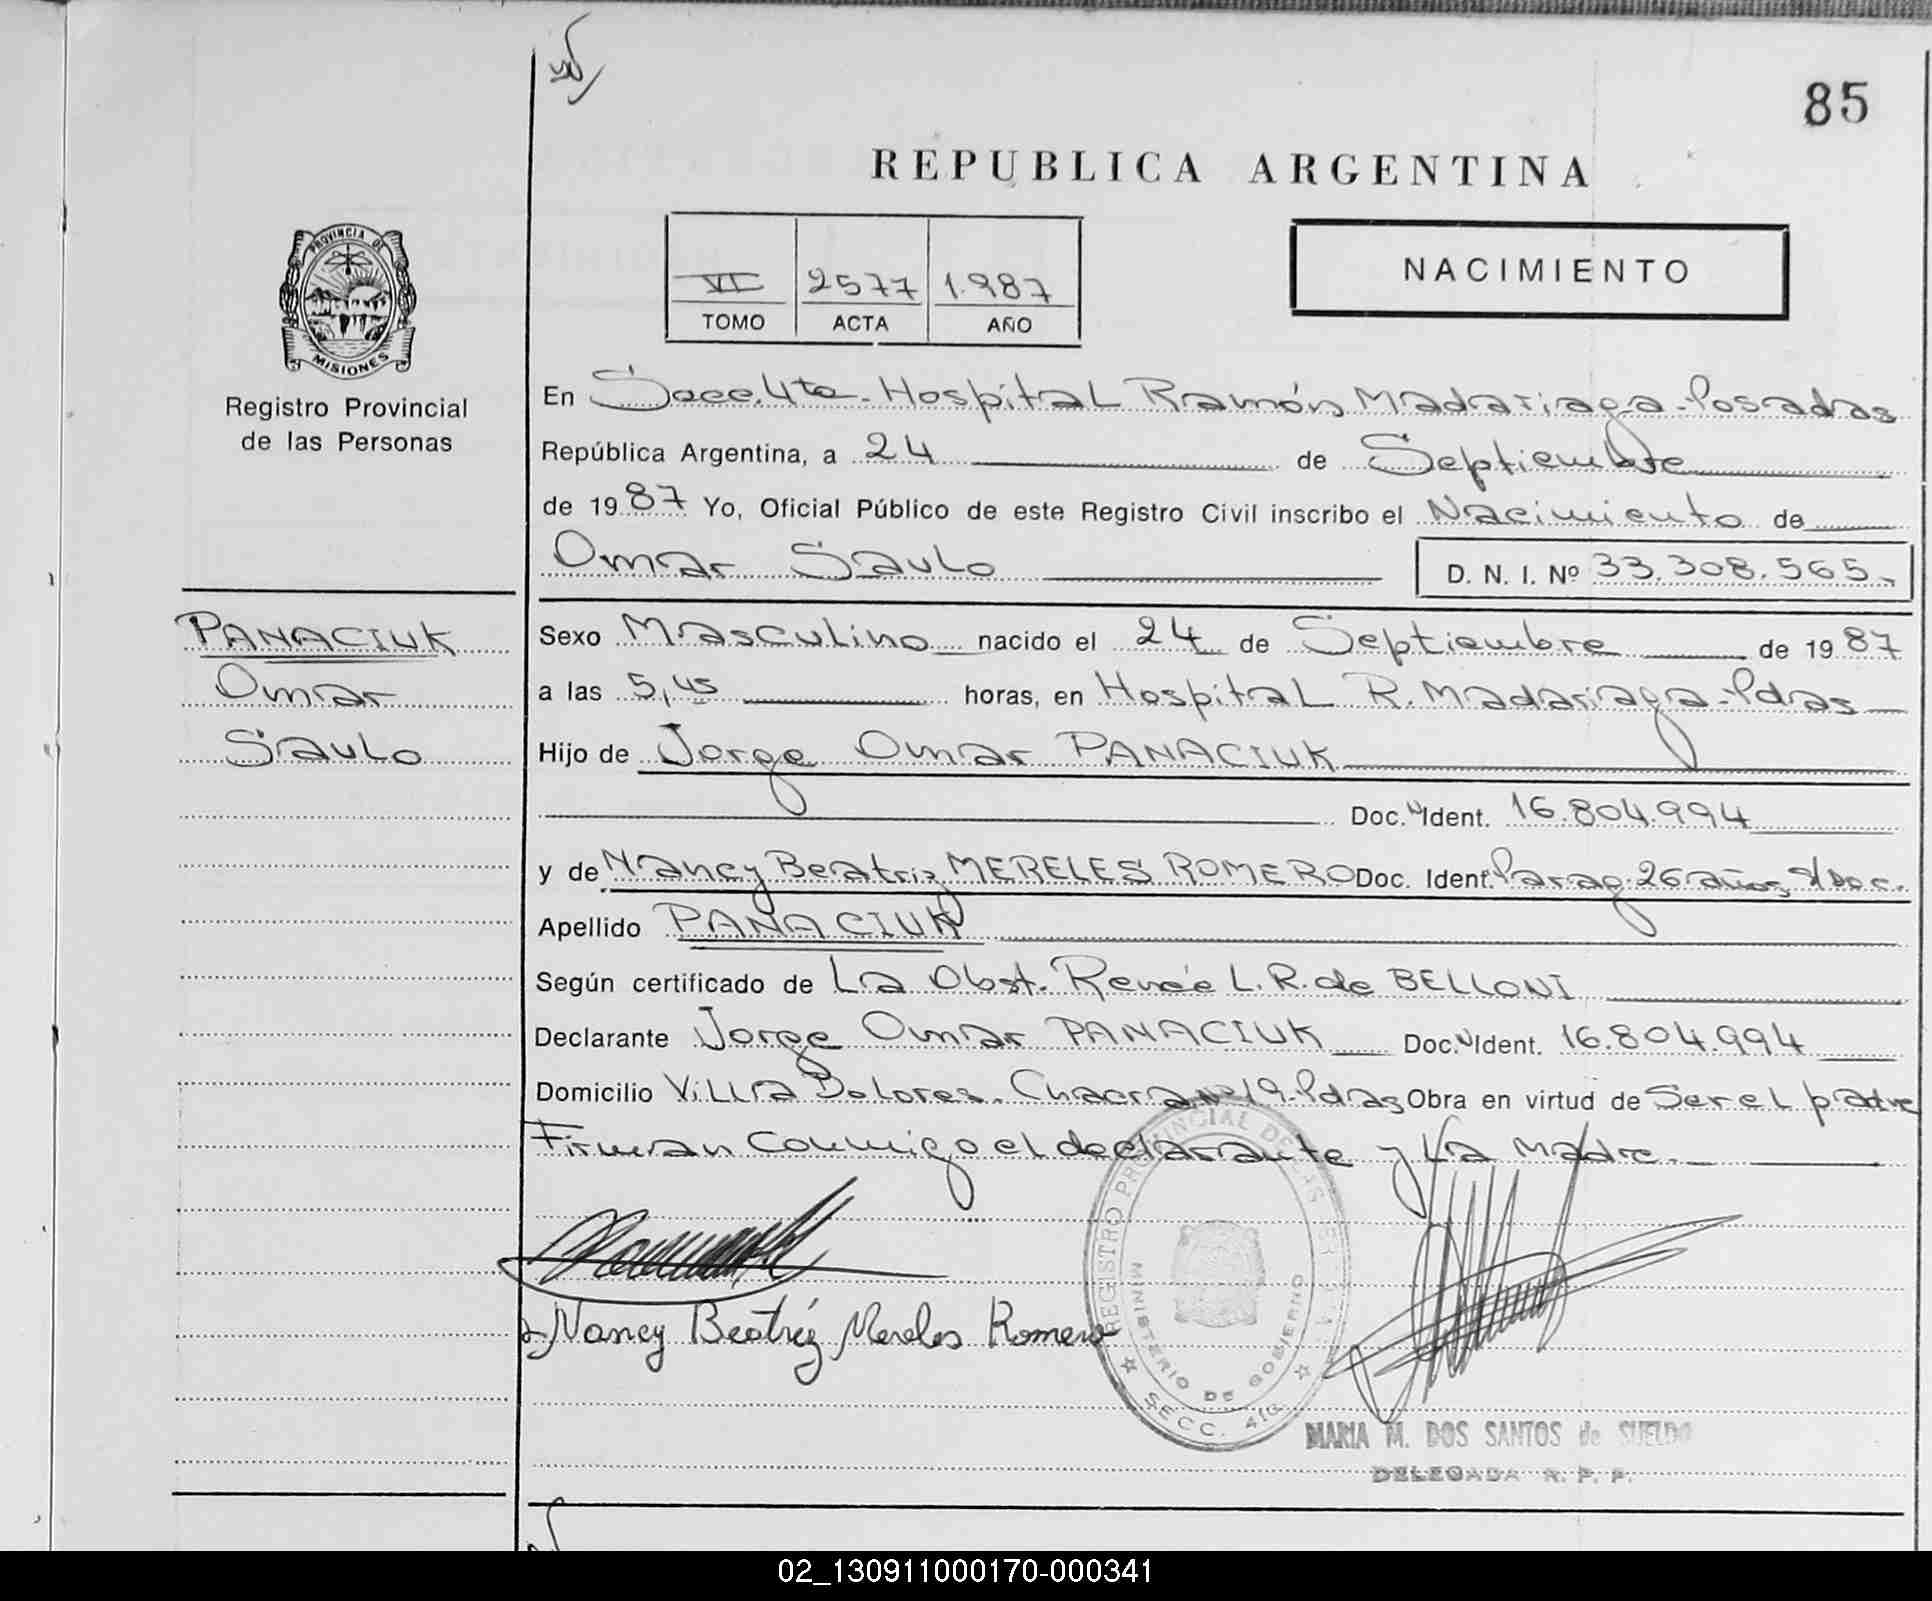 85
REPUBLICA ARGENTINA
VI 2577 1.987
TOMO ACTA AÑO
NACIMIENTO
PROVINCIA DE
MISIONES
Registro Provincial
de las Personas
En Secc. 4ta - Hospital Ramón Madariaga - Posadas
República Argentina, a 24 de Septiembre
de 1987 Yo, Oficial Público de este Registro Civil inscribo el Nacimiento de
Omar Saulo D. N. I. Nº 33.308.565.-
PANACIUK
Omar
Saulo
Sexo Masculino nacido el 24 de Septiembre de 1987
a las 5,45 horas, en Hospital R. Madariaga - Pdas
Hijo de Jorge Omar PANACIUK
Doc. Ident. 16.804.994
y de Nancy Beatriz MERELES ROMERO Doc. Ident. Parag. 26 años, s/Doc.
Apellido PANACIUK
Según certificado de La Obst. Renée L. R. de BELLONI
Declarante Jorge Omar PANACIUK Doc. Ident. 16.804.994
Domicilio Villa Dolores. Chacra Nº 19 - Pdas Obra en virtud de Ser el padre
Firman conmigo el declarante y la madre.
Nancy Beatríz Mereles Romero
REGISTRO PROVINCIAL DE LAS PERSONAS
MINISTERIO DE GOBIERNO
SECC. 4ta
MARIA M. DOS SANTOS de SUELDO
DELEGADA R. P. P.
02_130911000170-000341